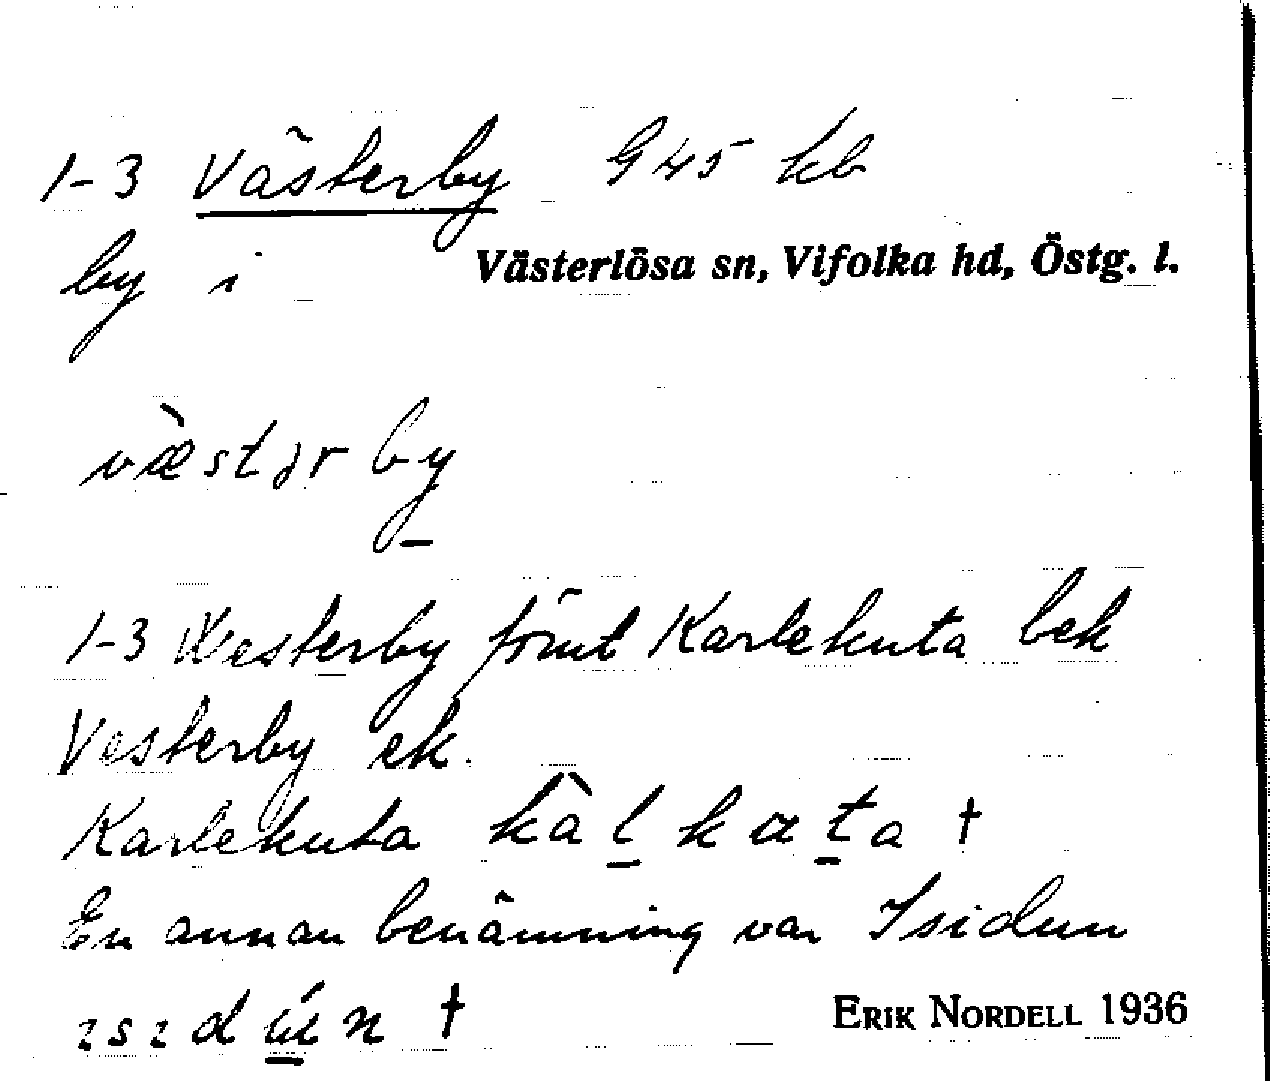 1-3 Västerby 945 kb
by i Västerlösa sn, Vifolka hd, Östg. l.
væstər by
1-3 Westerby förut Karlekuta bek
Vesterby ek.
Karlekuta kàlkata †
En annan benämning var Isidun
ısıdún †
ERIK NORDELL 1936